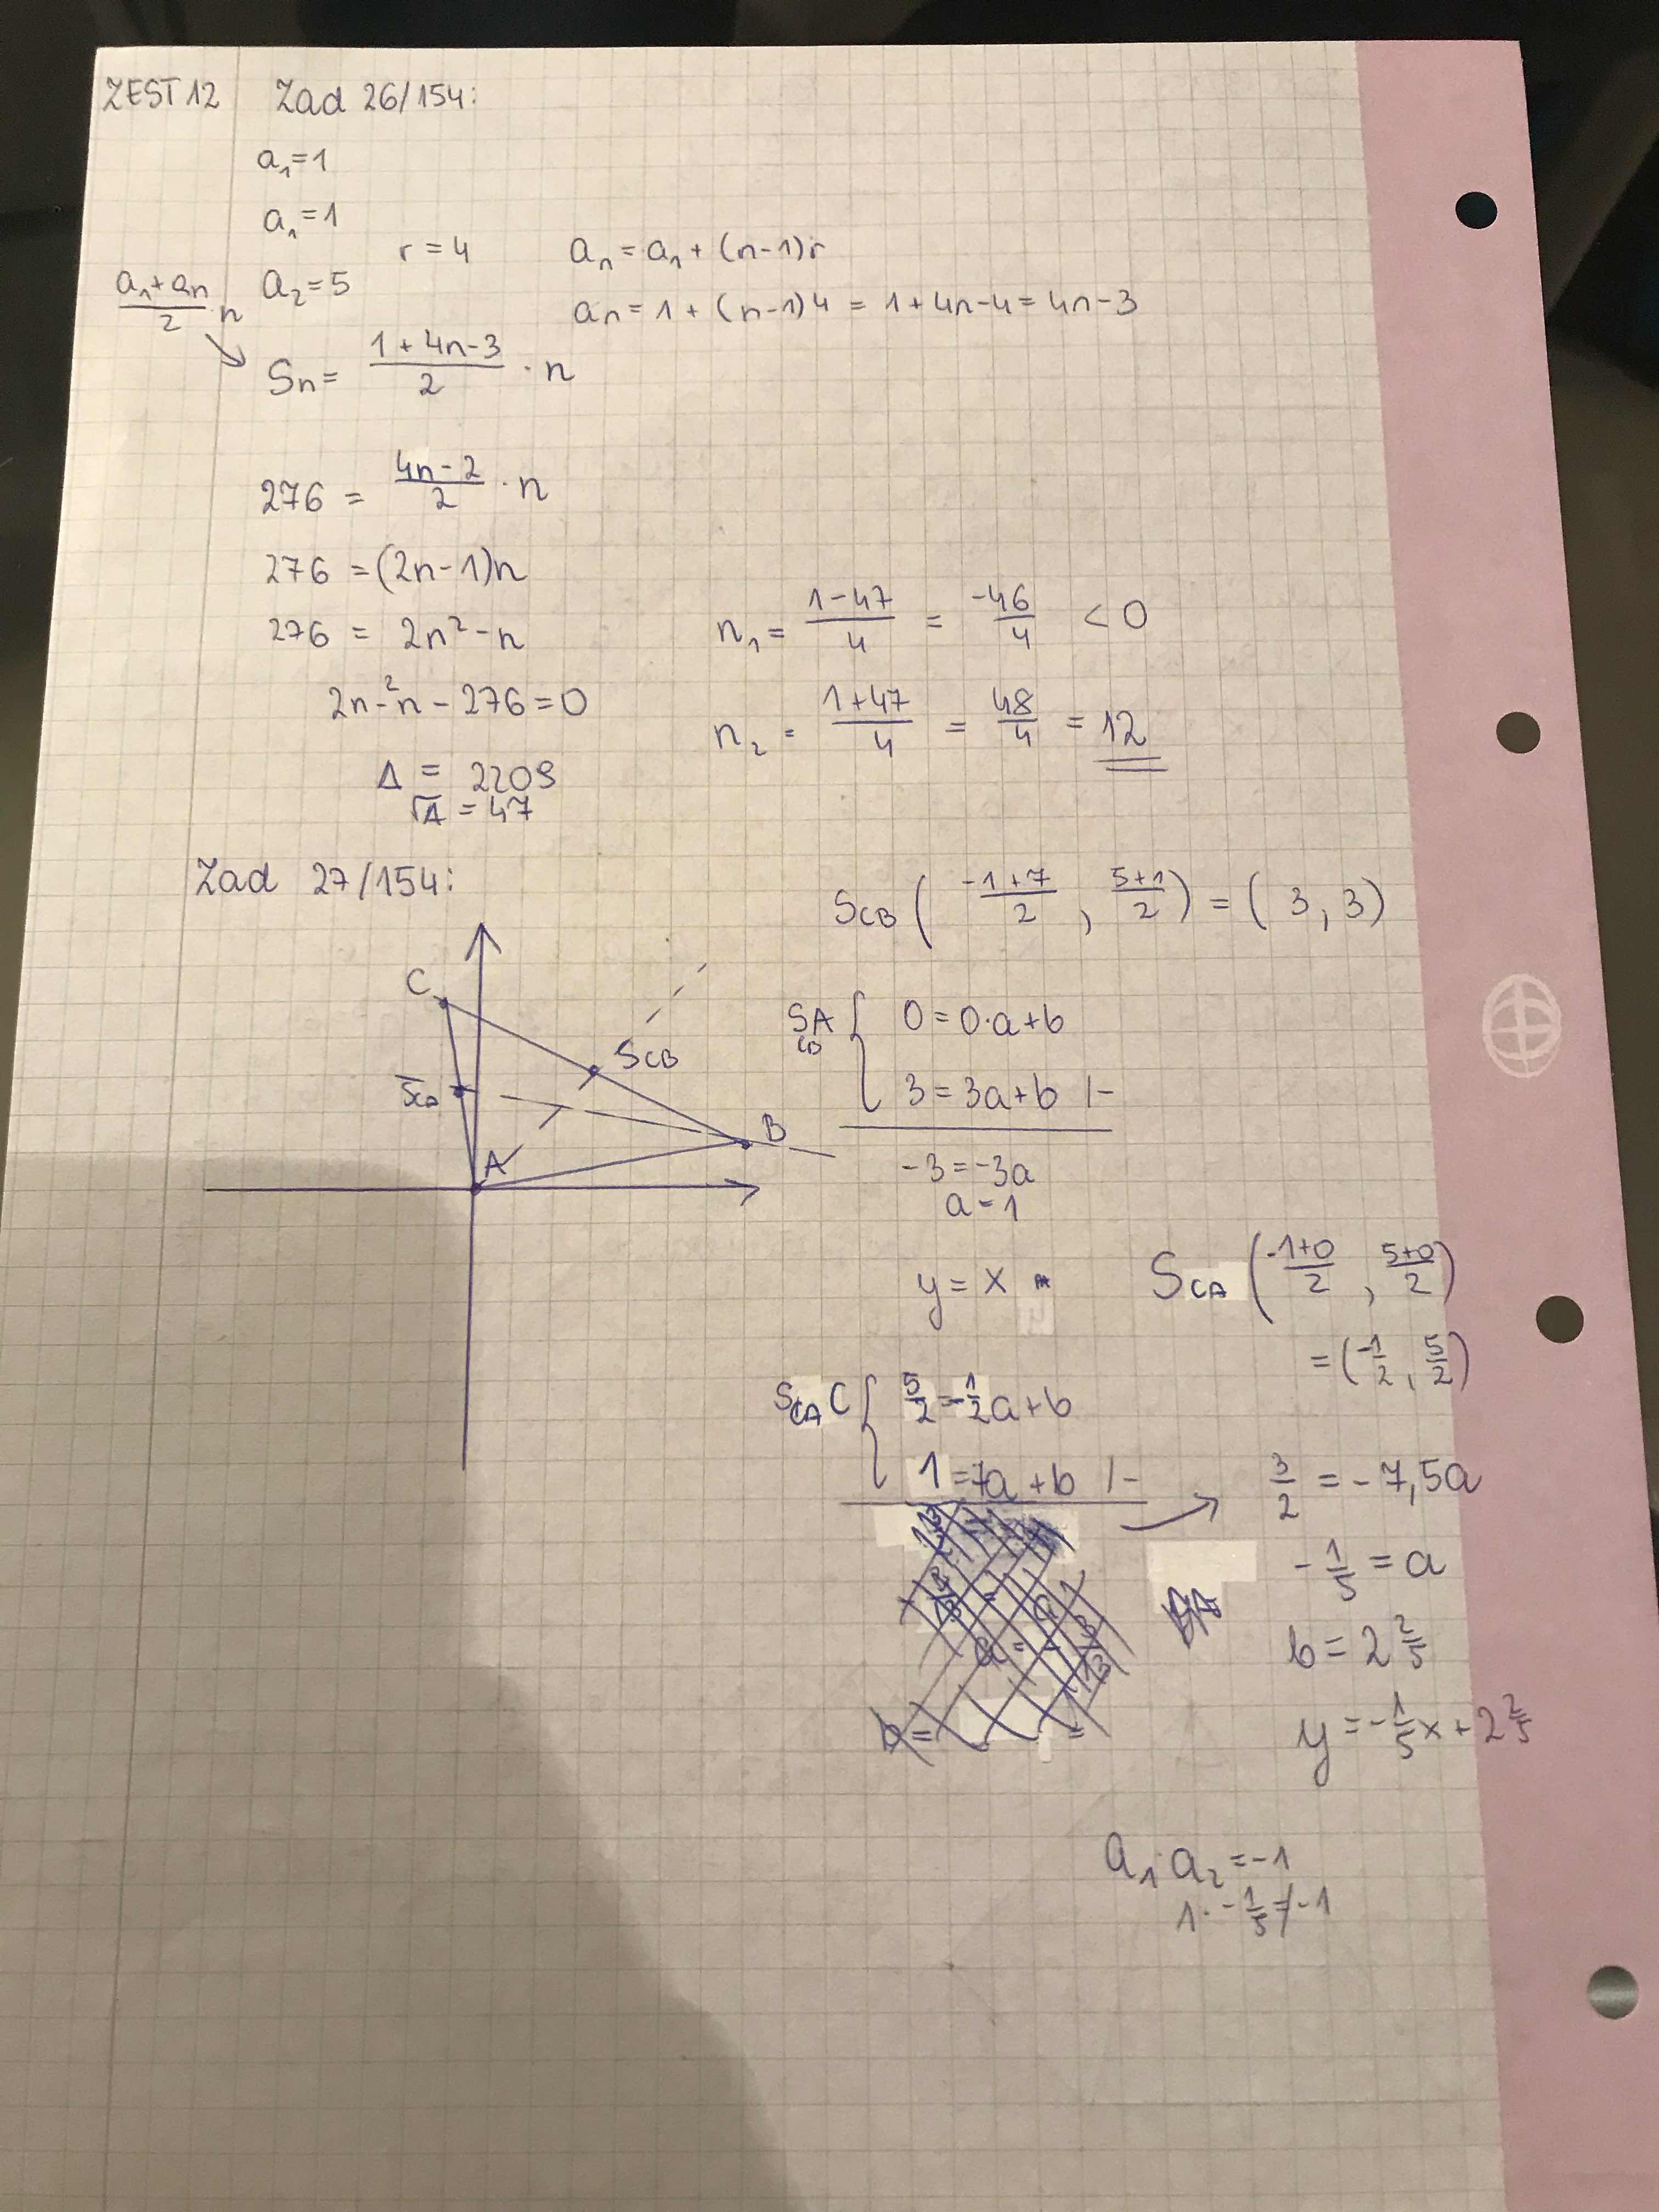 ZEST 12 Zad 26/154:
a₁=1
a₁=1
r=4 aₙ=a₁+(n-1)r
(a₁+aₙ)/2 · n a₂=5
aₙ=1+(n-1)4=1+4n-4=4n-3
Sₙ= (1+4n-3)/2 · n
276 = (4n-2)/2 · n
276 =(2n-1)n
276 = 2n²-n
n₁= (1-47)/4 = -46/4 <0
2n-²n-276=0
n₂= (1+47)/4 = 48/4 = 12
Δ = 2209
√Δ = 47
Zad 27/154:
S_CB ( (-1+7)/2 , (5+1)/2 ) = ( 3, 3)
C
S_CB
S_CA
B
A
S_CB A { 0=0·a+b
3=3a+b |-
-3=-3a
a=1
y=x
S_CA ( (-1+0)/2 , (5+0)/2 )
=(-1/2, 5/2)
S_CA C { 5/2=-1/2a+b
1=7a+b |-
3/2 = -7,5a
-1/5 = a
b=2 2/5
y=-1/5x+2 2/5
a₁·a₂=-1
1·-1/5≠-1